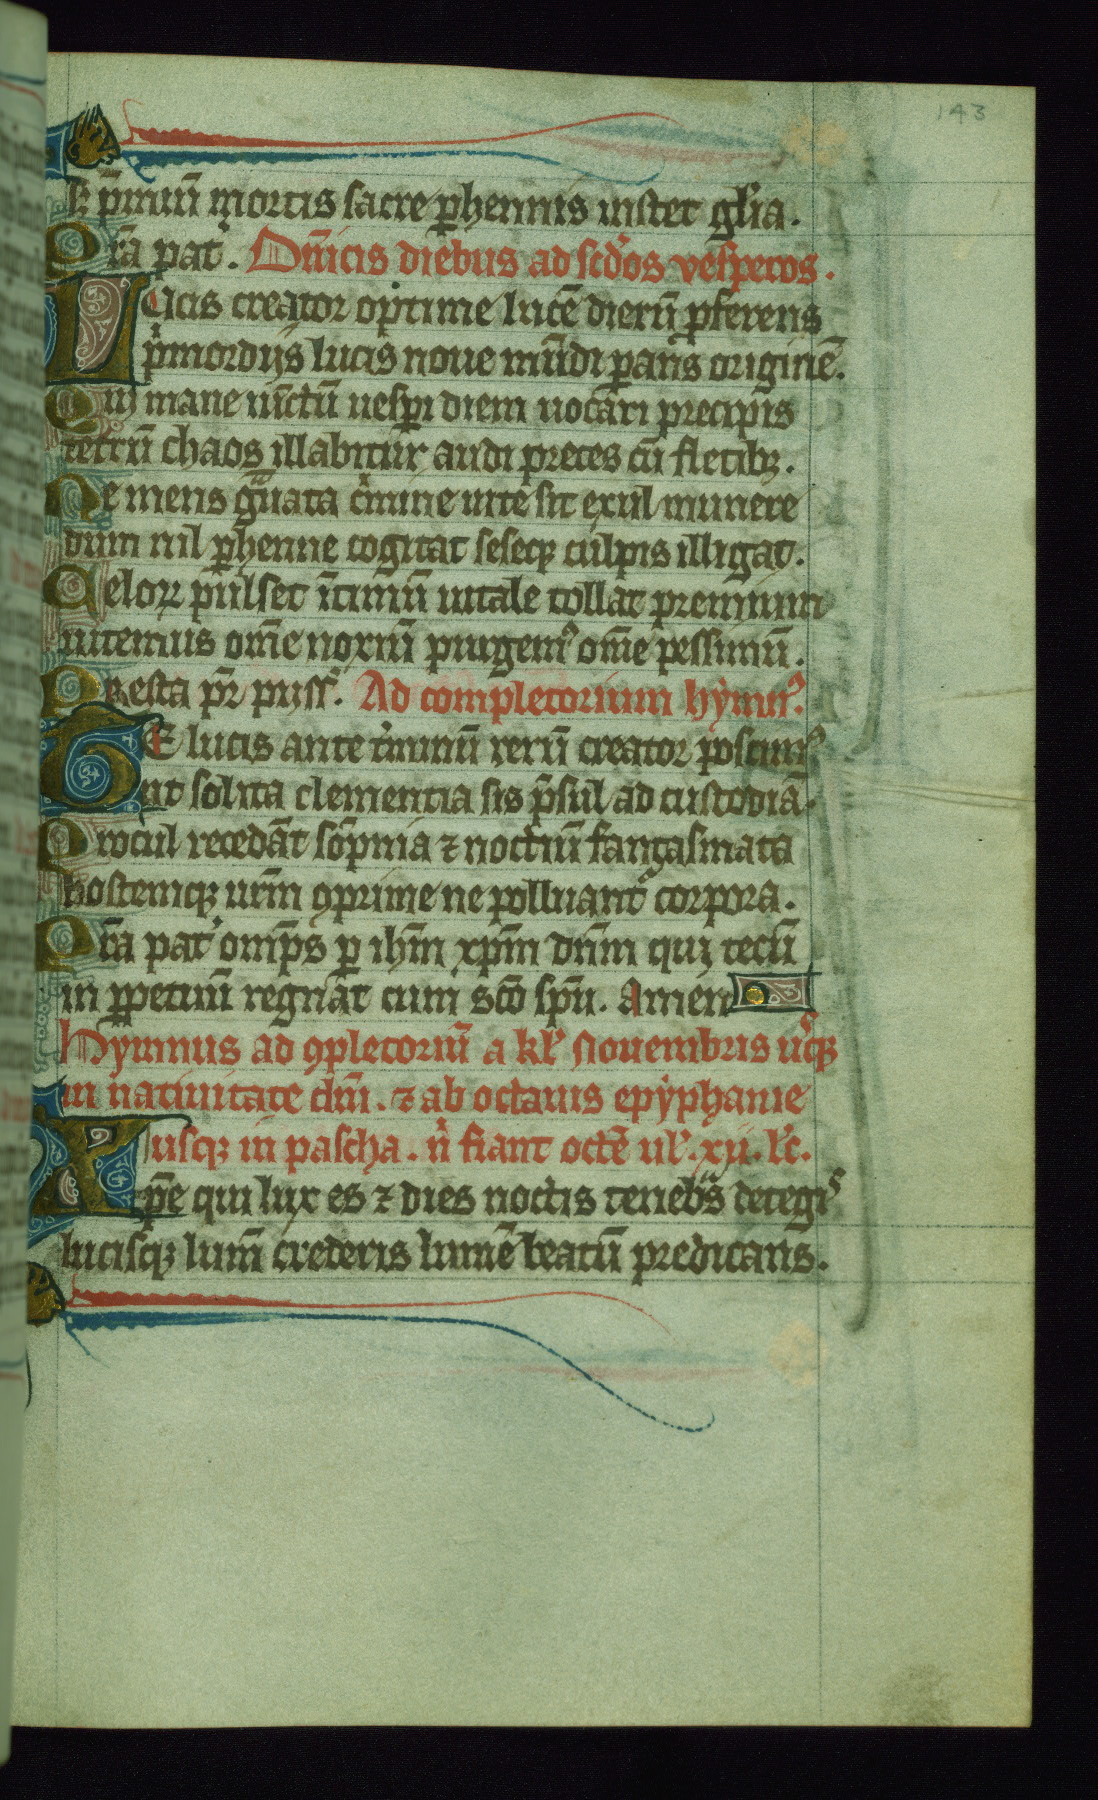 143
s; p̄miū mortis sacre ꝑhennis instet gl'ia.
Gr̄a pat'. Dn̄icis diebus ad sc̄d'os vesperos.
LUcis creator optime lucē dierū ꝓferens
p'mordijs lucis noue mūdi parans originē.
Qui mane iūctū uesꝑi diem uocari precipis
tetrū chaos illabitur audi preces cū fletibꝫ.
Ne mens g̃uata c'mine uite sit exul munere
dum nil ꝑhenne cogitat seseqꝫ culpis illigat.
Celoꝝ pulset ītimū uitale tollat premium
uitemus om̄e noxiū purgem' om̄e pessimū.
Presta pr̄ pijss'. Ad completorium hỹmn'.
TE lucis ante t'minū rerū creator poscim'
ut solita clementia sis p̄sul ad custodiā.
Procul recedāt sōpnia ⁊ noctiū fantasmata
hostemqꝫ nr̄m ꝯprime ne polluant' corpora.
Pr̄a pat' om̄ps ꝑ ih̄m xp̄m dn̄m qui tecū
in ꝑpetuū regnat cum sc̄o sp̄u. Amen
Hymnus ad ꝯpletoriū a kl' Nouembris usqꝫ
in natiuitate dn̄i. ⁊ ab octauis epẏphanie
usqꝫ in pascha. n' fiant octē ul'. xij. lc̄.
Xp̄e qui lux es ⁊ dies noctis tenebᵃs detegis
lucisqꝫ lum̄ crederis lumē beatū predicans.